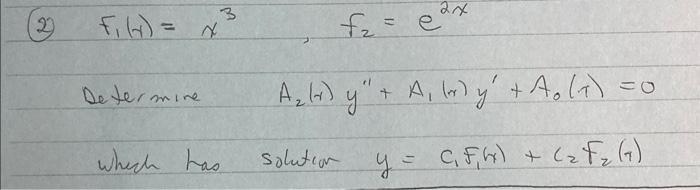 ② F₁(x) = x³ , f₂ = e^{2x}
Determine A₂(x) y'' + A₁(x) y' + A₀(x) = 0
which has solution y = C₁F₁(x) + C₂F₂(x)